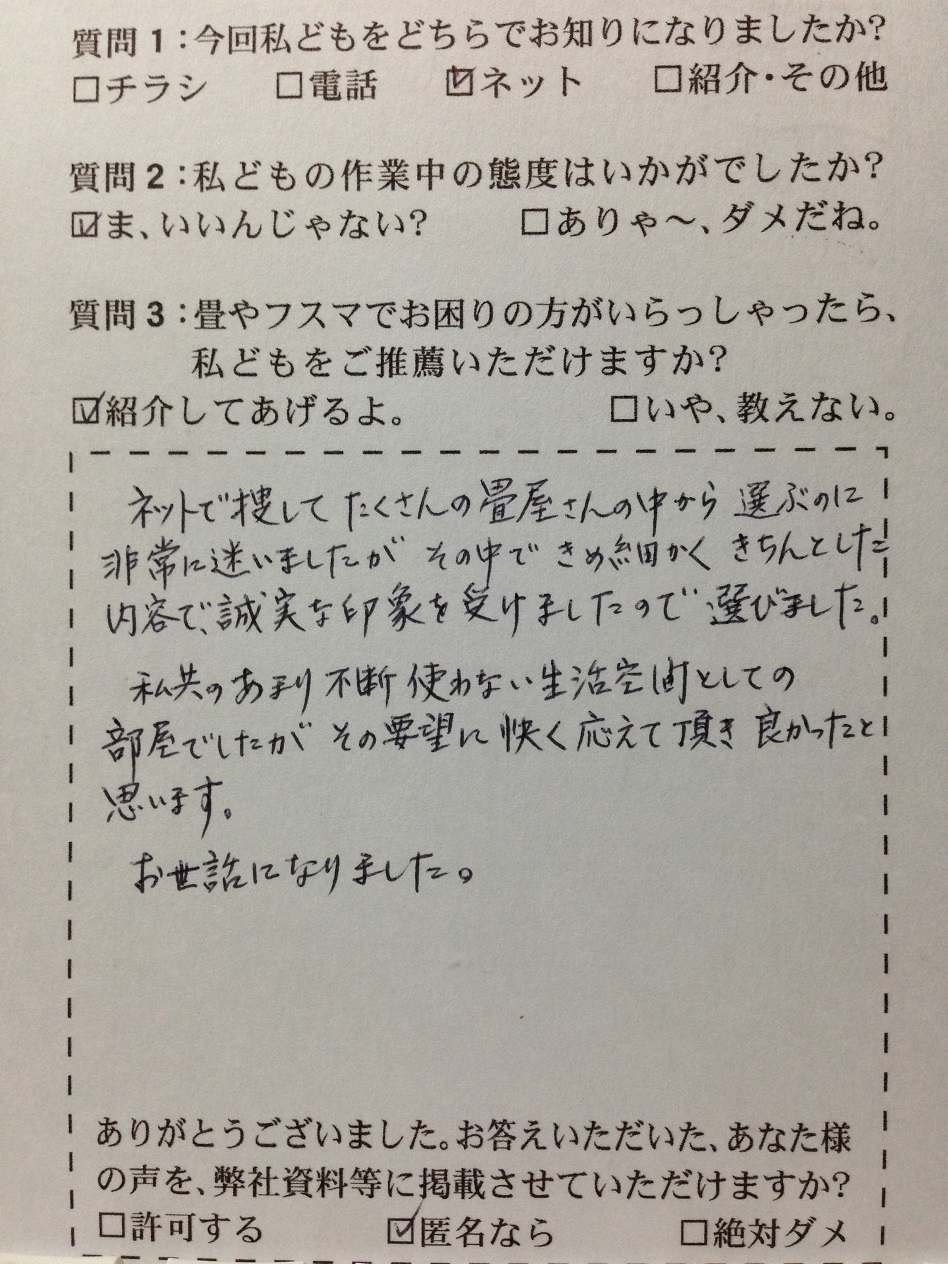 質問1:今回私どもをどちらでお知りになりましたか?
□チラシ □電話 ☑ネット □紹介・その他
質問2:私どもの作業中の態度はいかがでしたか?
☑ま、いいんじゃない? □ありゃ～、ダメだね。
質問3:畳やフスマでお困りの方がいらっしゃったら、
私どもをご推薦いただけますか?
☑紹介してあげるよ。 □いや、教えない。
ネットで捜して たくさんの畳屋さんの中から 選ぶのに
非常に迷いましたが その中で きめ細かく きちんとした
内容で、誠実な印象を受けましたので 選びました。
私共のあまり不断使わない生活空間としての
部屋でしたが その要望に 快く応えて頂き 良かったと
思います。
お世話になりました。
ありがとうございました。お答えいただいた、あなた様
の声を、弊社資料等に掲載させていただけますか?
□許可する ☑匿名なら □絶対ダメ